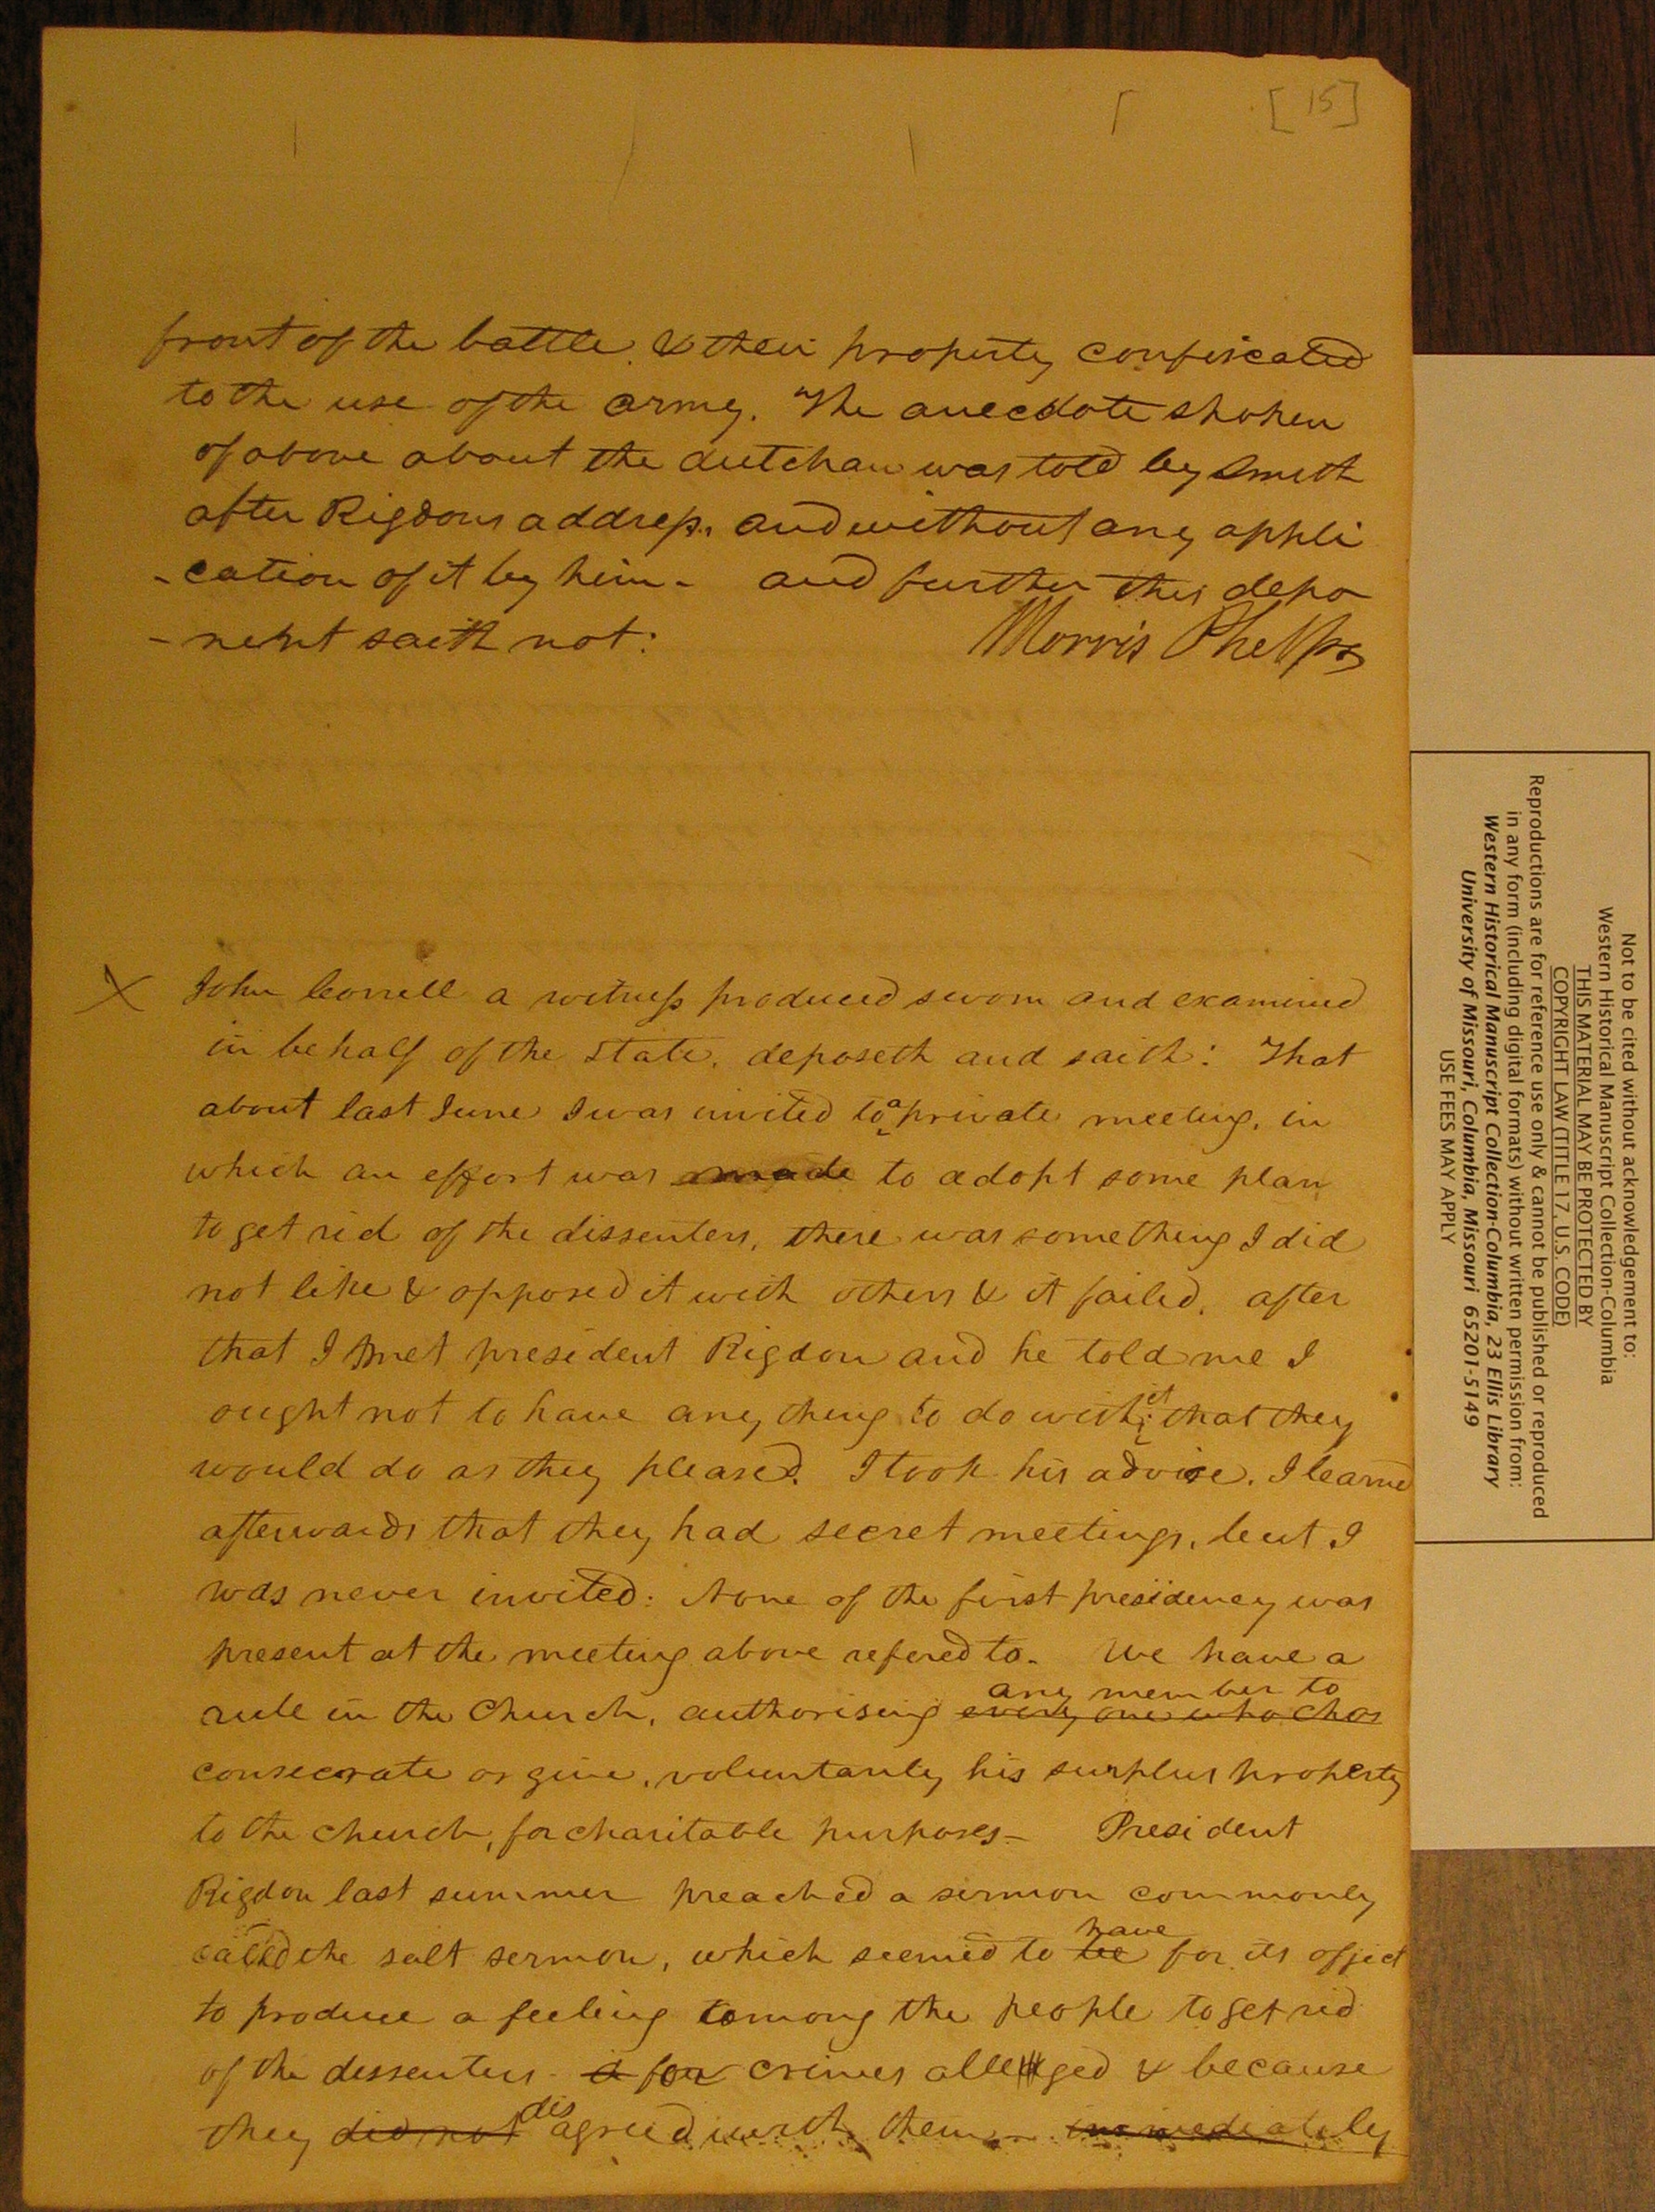 [ 15]
front of the battle. & their property confiscated
to the use of the army. The anecdote spoken
of above about the dutchan was told by Smith
after Rigdons address, and without any appli
-cation of it by him - and further this depo
-nent saith not:
Morris Phelps
X John Correll a witness produced sworn and examined
in behalf of the State, deposeth and saith: That
about last June I was invited to a private meeting, in
which an effort was made to adopt some plan
to get rid of the dissenters, there was something I did
not like & opposed it with others & it failed, after
that I met president Rigdon and he told me I
ought not to have any thing to do with it; that they
would do as they pleased. I took his advise. I learned
afterwards that they had secret meetings, but I
was never invited: None of the first presidency was
present at the meeting above refered to. We have a
rule in the Church, authorising every one who chos any member to
consecrate or give, voluntarily his surplus property
to the church, for charitable purposes - President
Rigdon last summer preached a sermon commonly
called the salt sermon, which seemed to be have for its object
to produce a feeling among the people to get rid
of the dessenters - for crimes alledged & because
they did not disagreed with them - immediately
Not to be cited without acknowledgement to:
Western Historical Manuscript Collection-Columbia
THIS MATERIAL MAY BE PROTECTED BY
COPYRIGHT LAW (TITLE 17, U.S. CODE)
Reproductions are for reference use only & cannot be published or reproduced
in any form (including digital formats) without written permission from:
Western Historical Manuscript Collection-Columbia, 23 Ellis Library
University of Missouri, Columbia, Missouri 65201-5149
USE FEES MAY APPLY